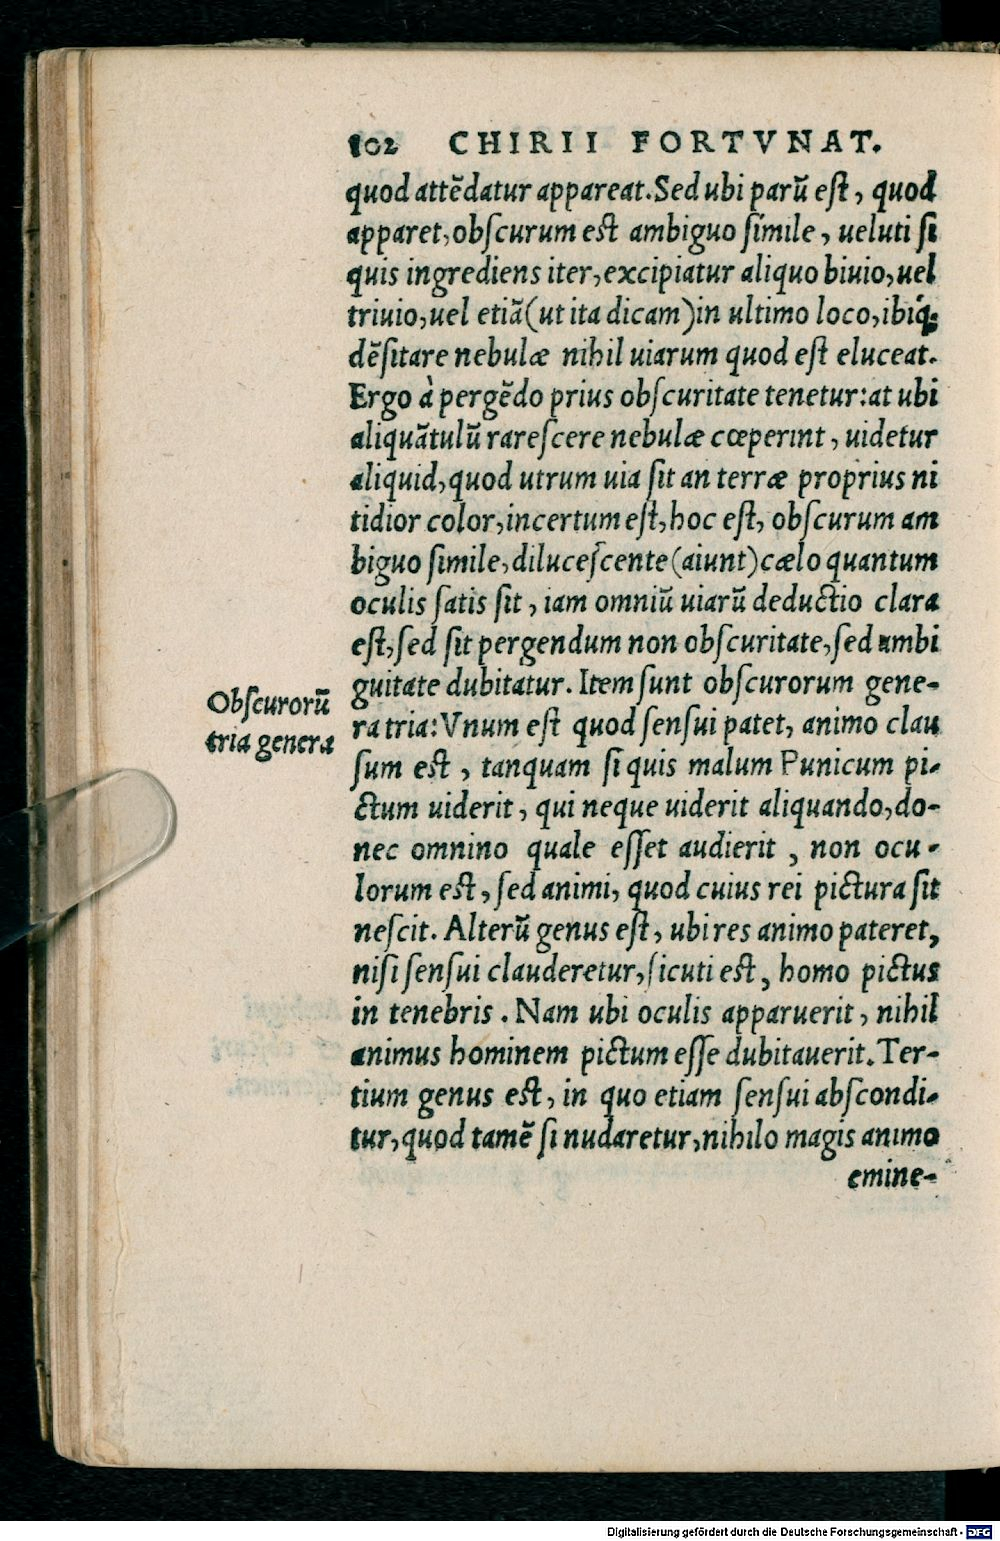 102 CHIRII FORTVNAT.
quod attẽdatur appareat. Sed ubi parũ eſt, quod
apparet, obſcurum est ambiguo ſimile, ueluti ſi
quis ingrediens iter, excipiatur aliquo biuio, uel
triuio, uel etiã (ut ita dicam) in ultimo loco, ibiq́;
dẽſitare nebulæ nihil uiarum quod eſt eluceat.
Ergo à pergẽdo prius obſcuritate tenetur: at ubi
aliquãtulũ rareſcere nebulæ cœperint, uidetur
aliquid, quod utrum uia ſit an terræ proprius ni
tidior color, incertum eſt, hoc eſt, obſcurum am
biguo ſimile, diluceſcente (aiunt) cælo quantum
oculis ſatis ſit, iam omniũ uiarũ deductio clara
eſt, ſed ſit pergendum non obſcuritate, ſed ambi
guitate dubitatur. Item ſunt obſcurorum gene-
Obſcurorũ
tria genera
ra tria: Vnum eſt quod ſenſui patet, animo clau
ſum est, tanquam ſi quis malum Punicum pi-
ctum uiderit, qui neque uiderit aliquando, do-
nec omnino quale eſſet audierit, non ocu-
lorum est, ſed animi, quod cuius rei pictura ſit
neſcit. Alterũ genus eſt, ubi res animo pateret,
niſi ſenſui clauderetur, ſicuti est, homo pictus
in tenebris. Nam ubi oculis apparuerit, nihil
animus hominem pictum eſſe dubitauerit. Ter-
tium genus est, in quo etiam ſenſui abſcondi-
tur, quod tamẽ ſi nudaretur, nihilo magis animo
emine-
Digitalisierung gefördert durch die Deutsche Forschungsgemeinschaft - DFG